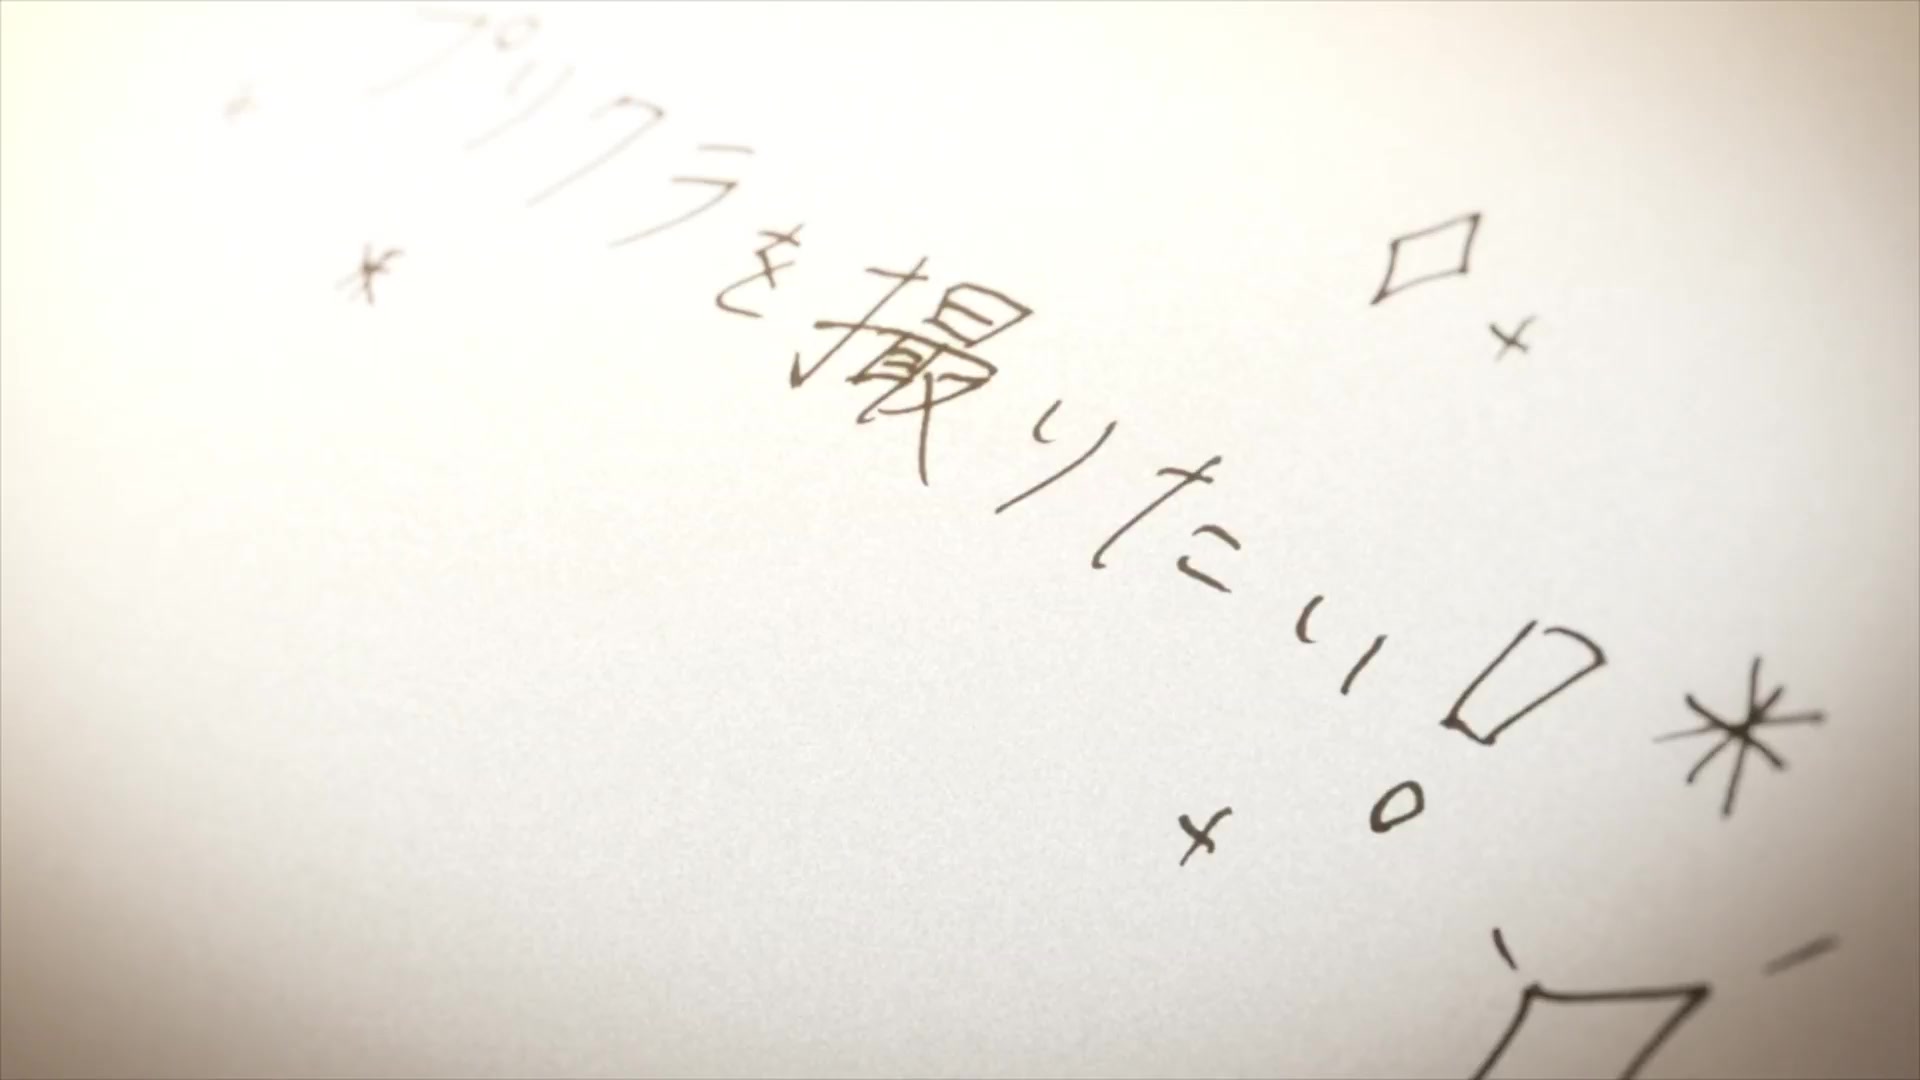 プリクラを撮りたい!